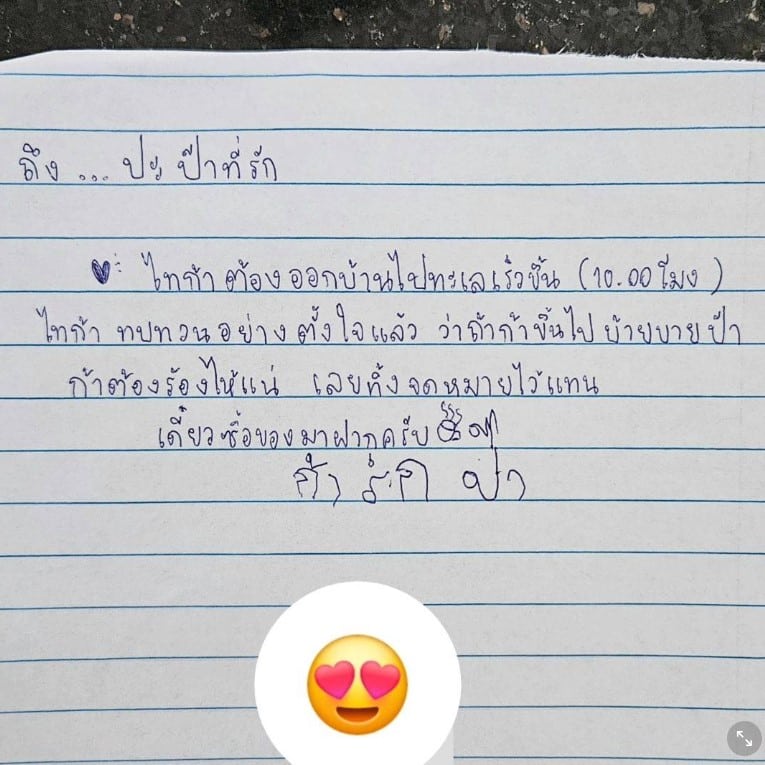 ถึง ... ปะป๊าที่รัก
ไทก้าต้องออกบ้านไปทะเลเร็วขึ้น (10.00 โมง)
ไทก้า ทบทวนอย่างตั้งใจแล้ว ว่าถ้าก้าขึ้นไปบ๊ายบายป๊า
ก้าต้องร้องไห้แน่ เลยทิ้งจดหมายไว้แทน
เดี๋ยวซื้อของมาฝากครับ
ก้า รัก ป๊า